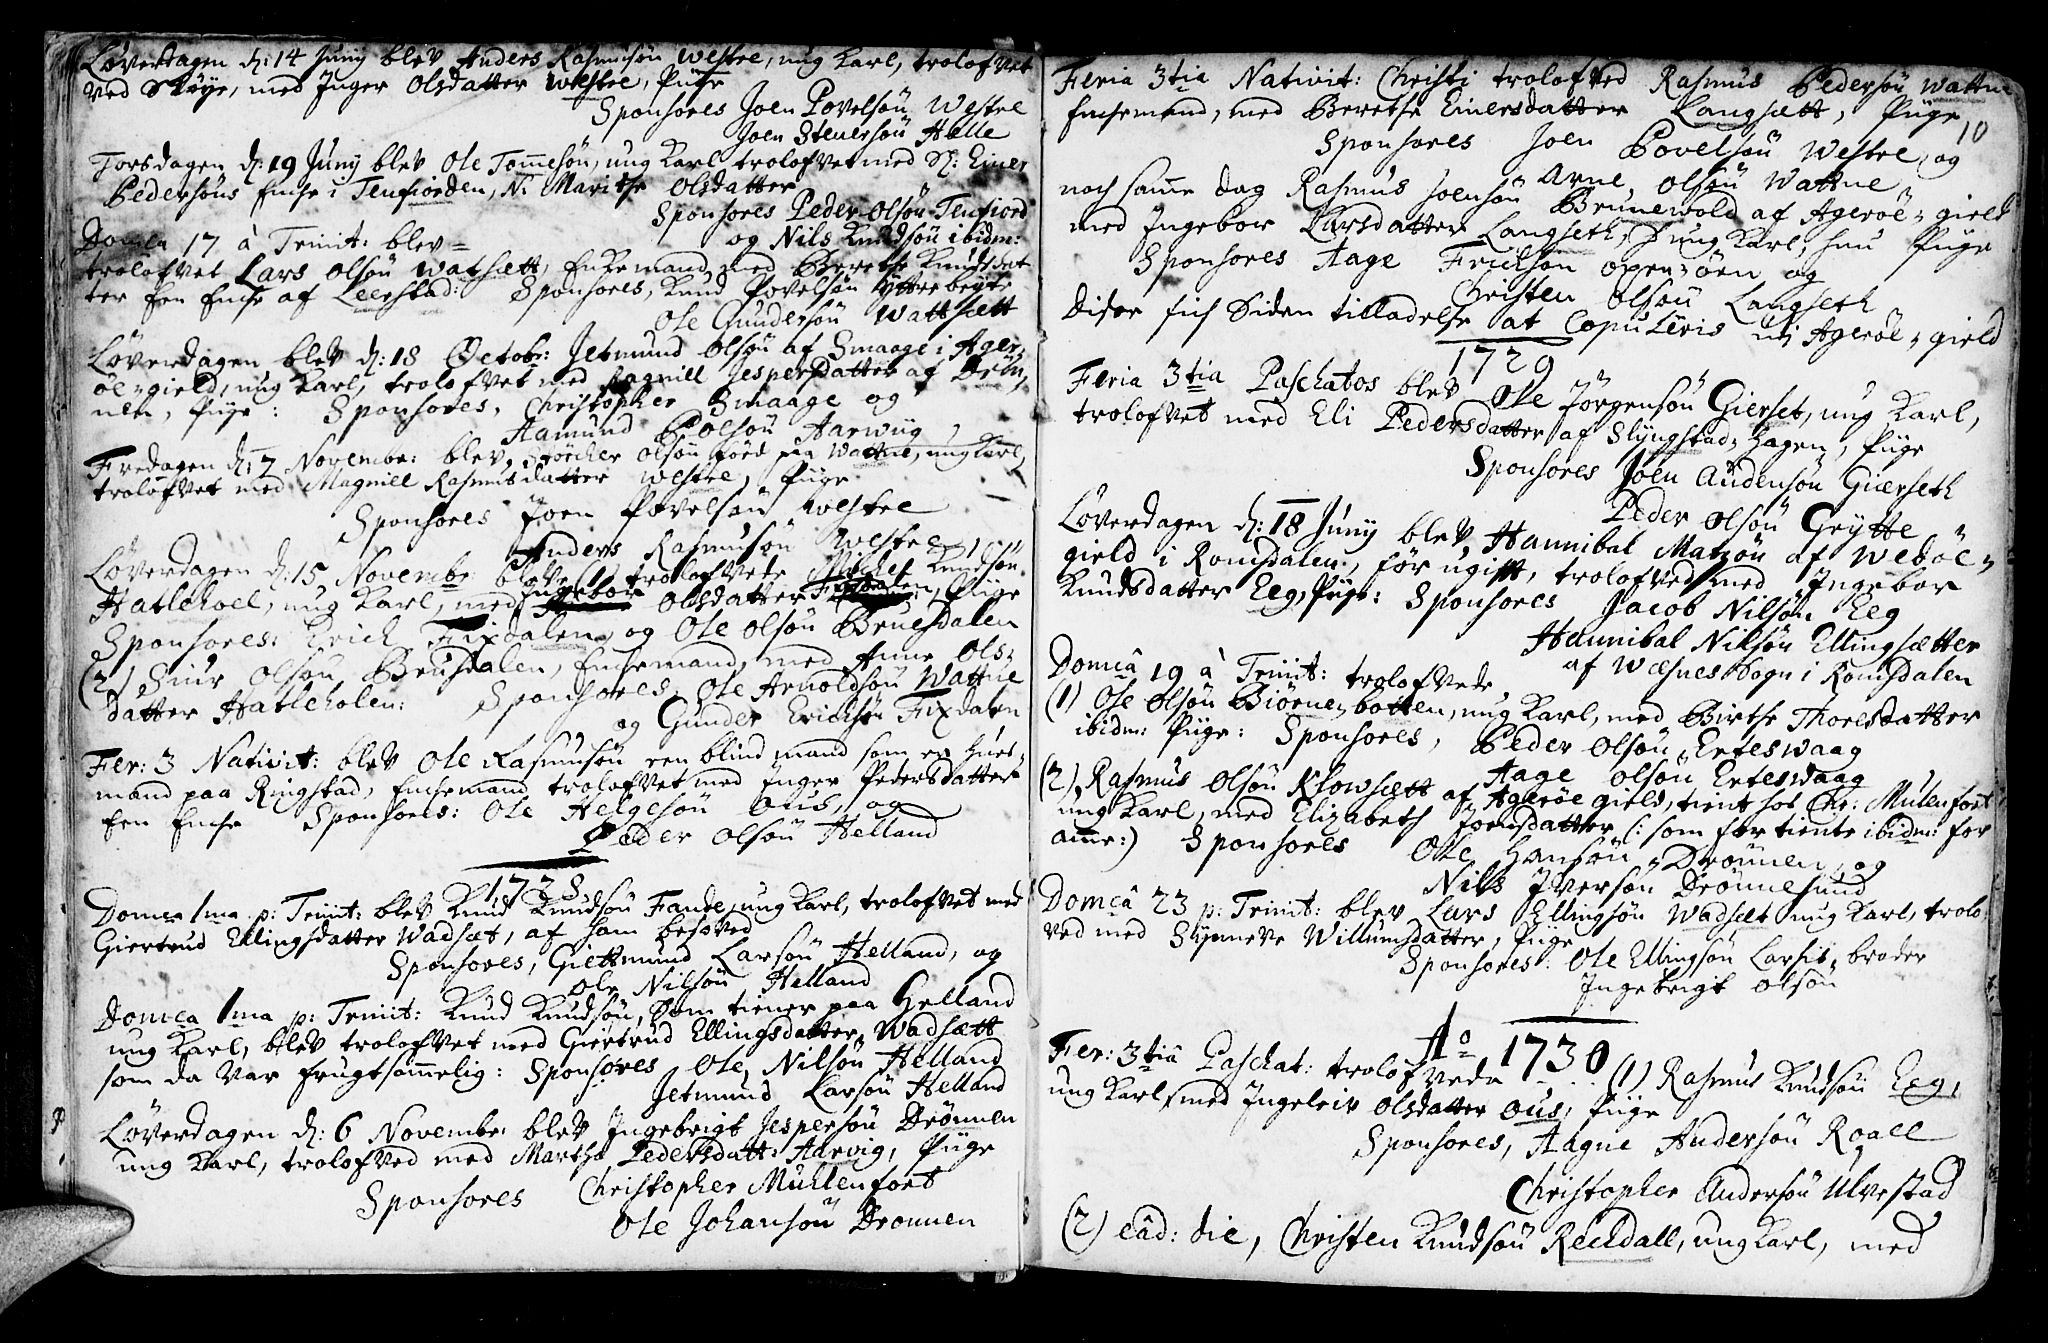 Løverdagen d: 14 Junij blev Anders Rasmusøn Westre, ung Karl, trolofvet
ved Skøye, med Inger Olsdatter Westre, Piige
Sponsores Joen Povelsøn Westre
Joen Stenersøn Helle
Torsdagen d: 19 Junij blev Ole Tommesøn, ung Karl trolofvet med Sl: Einer
Pedersøns Enche i Tenfiorden, N: Marithe Olsdatter
Sponsores Peder Olsøn Tenfiord
og Nils Knudsøn ibidm:
Domca 17 à Trinit: blev
trolofvet Lars Olsøn Watsætt, Enkemand med Berethe Knudsdat
ter Een Enche af Leerstad: Sponsores, Knud Povelsøn Yttrebøyte
Ole Gundersøn Wattsætt
Løverdagen blev d: 18 Octobr: Jetmund Olsøn af Smaage i Ager
öe gield, ung Karl, trolofvet med Magnill Jespersdatter af Drön
nen, Piige: Sponsores, Christopher Smaage og
Aamund Polsøn Aarwiig
Fredagen d: 7 Novembr: blev Olsøn föed paa Watne, ung Karl,
trolofvet med Magnill Rasmusdatter Westre, Piige
Sponsores Joen Povelsøn Westre
Anders Rasmusøn Westre
Løverdagen d: 15 Novembr: bleve (1) trolofvede Michel Knudsøn
Hatlehoel, ung Karl, med Ingebor Olsdatter Fixdalen, Piige
Sponsores: Erich Fixdalen, og Ole Olsøn Bruesdalen
(2) Siur Olsøn Brusdalen, Enchemand, med Anne Ols
datter Hatleholen: Sponsores, Ole Arnoldsøn Wattne
og Gunder Erichsøn Fixdalen
Fer: 3 Nativit: blev Ole Rasmusøn een blind mand som er Huus
mand paa Ringstad, Enchemand trolofvet med Inger Pedersdatter
Een Enche Sponsores: Ole Helgesøn Ous, og
Peder Olsøn Helland
1728
Domca 1ma p: Trinit: blev Knud Knudsøn Fande, ung Karl, trolofvet med
Giertrud Ellingsdatter Wadsæt, af ham besøved
Sponsores, Giettmund Larsøn Helland, og
Ole Nilsøn Helland
Domca 1ma p: Trinit: Knud Knudsøn, Som tiener paa Helland
ung Karl, blev trolofvet med Giertrud Ellingsdatter Wadsætt
som da var frugtsommelig: Sponsores Ole Nilsøn Helland
Jetmund Larsøn Helland
Løverdagen d: 6 Novembr: blev Ingebrigt Jespersøn Drönnen
ung Karl, trolofved med Martha Pedersdatt: Aarvig, Piige
Sponsores Christopher Muhlenfort
Ole Johansøn Dronnen
10
Feria 3tia Nativit: Christi trolofved Rasmus Pedersøn Wattne
Enchemand, med Berethe Einersdatter Langsætt, Piige
Sponsores Joen Povelsøn Westre, og
Arne Olsøn Wattne
noch samme dag Rasmus Joensøn Brunewold af Agerøe gield
med Ingebor Larsdatter Langseth, ung Karl, hun Piige
Sponsores Aage Erichsøn open öen og
Christen Olsøn Langseth
Disse fich Siden tilladelse at Copuleris udj Agerøe gield
1729
Feria 3tia Paschatos blev Ole Jörgensøn Gierset, ung Karl,
trolofvet med Eli Pedersdatter af Slyngstad Hagen, Piige
Sponsores Joen Audensøn Giærseth
Peder Olsøn Grytte
Løverdagen d: 18 Junij blev Hannibal Matzøn af Wedöe
gield i Romsdalen, för ugift, trolofved med Ingebor
Knudsdatter Eeg, Piige: Sponsores Jacob Nilsøn Eeg
Hannibal Nilsøn Ellingsætter
af Wæsnes Sogn i Romsdalen
Domcâ 19 à Trinit: trolofvede
(1) Ole Olsøn Biörnebotten, ung Karl, med Birthe Thoresdatter
ibidm: Piige: Sponsores, Peder Olsøn Erteswaag
Aage Olsøn Erteswaag
(2) Rasmus Olsøn Klowsætt af Agerøe gield, tient hos Chr: Mulenfort
ung Karl, med Elizabeth Joensdatter (: som før tiente ibidm: for
amme:) Sponsores Ole Hansøn Drönnen, og
Nils Iversøn Drönnesund
Domcâ 23 p: Trinit: blev Lars Ellingsøn Wadsæt ung Karl, trolo
ved med Synneve Willumsdatter, Piige
Sponsores: Ole Ellingsøn Larsis broder
Ingebrigt Olsøn
Ao 1730
Fer: 3tiâ Paschat: trolofvede (1) Rasmus Knudsøn Eeg,
ung Karl, med Ingeleiv Olsdatter Ous, Piige
Sponsores, Aagne Andersøn Roall
Christopher Andersøn Ulvestad
(2) eâd: die, Christen Knudsøn Reeldall, ung Karl, med